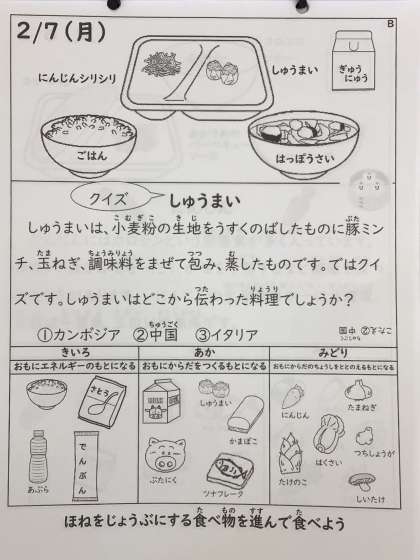 B
2/7(月)
にんじんシリシリ
しゅうまい
ぎゅう
にゅう
ごはん
はっぽうさい
クイズ
しゅうまい
こむぎこ きじ ぶた
しゅうまいは、小麦粉の生地をうすくのばしたものに豚ミン
たま ちょうみりょう つつ む
チ、玉ねぎ、調味料をまぜて包み、蒸したものです。ではクイ
つた りょうり
ズです。しゅうまいはどこから伝わった料理でしょうか?
ちゅうごく
①カンボジア ②中国 ③イタリア
きいろ
おもにエネルギーのもとになる
さとう
あぶら
でんぷん
あか
おもにからだをつくるもとになる
しゅうまい
かまぼこ
ぶたにく
ツナフレーク
みどり
おもにからだのちょうしをととのえるもとになる
にんじん
たまねぎ
はくさい
つちしょうが
たけのこ
しいたけ
た もの すす た
ほねをじょうぶにする食べ物を進んで食べよう